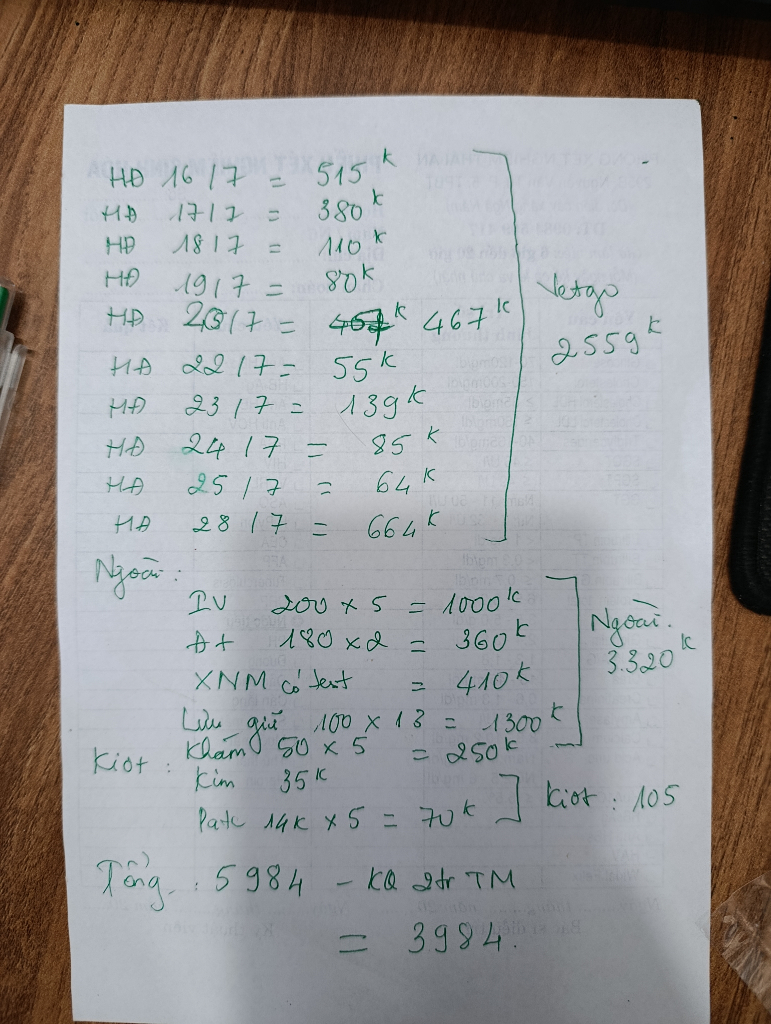 HĐ 16/7 = 515k
HĐ 17/7 = 380k
HĐ 18/7 = 110k
HĐ 19/7 = 80k
HĐ /7 = 467k
HĐ 22/7 = 55k
HĐ 23/7 = 139k
HĐ 24/7 = 85k
HĐ 25/7 = 64k
HĐ 28/7 = 664k
Vetgo
2559k
Ngoài:
IV 200 x 5 = 1000k
At 180 x 2 = 360k
XNM có test = 410k
Lưu giữ 100 x 13 = 1300k
Khám 50 x 5 = 250k
Ngoài.
3.320k
Kiot:
Kim 35k
Pate 14k x 5 = 70k
Kiot: 105
Tổng: 5984 - KQ 2tr TM
= 3984.